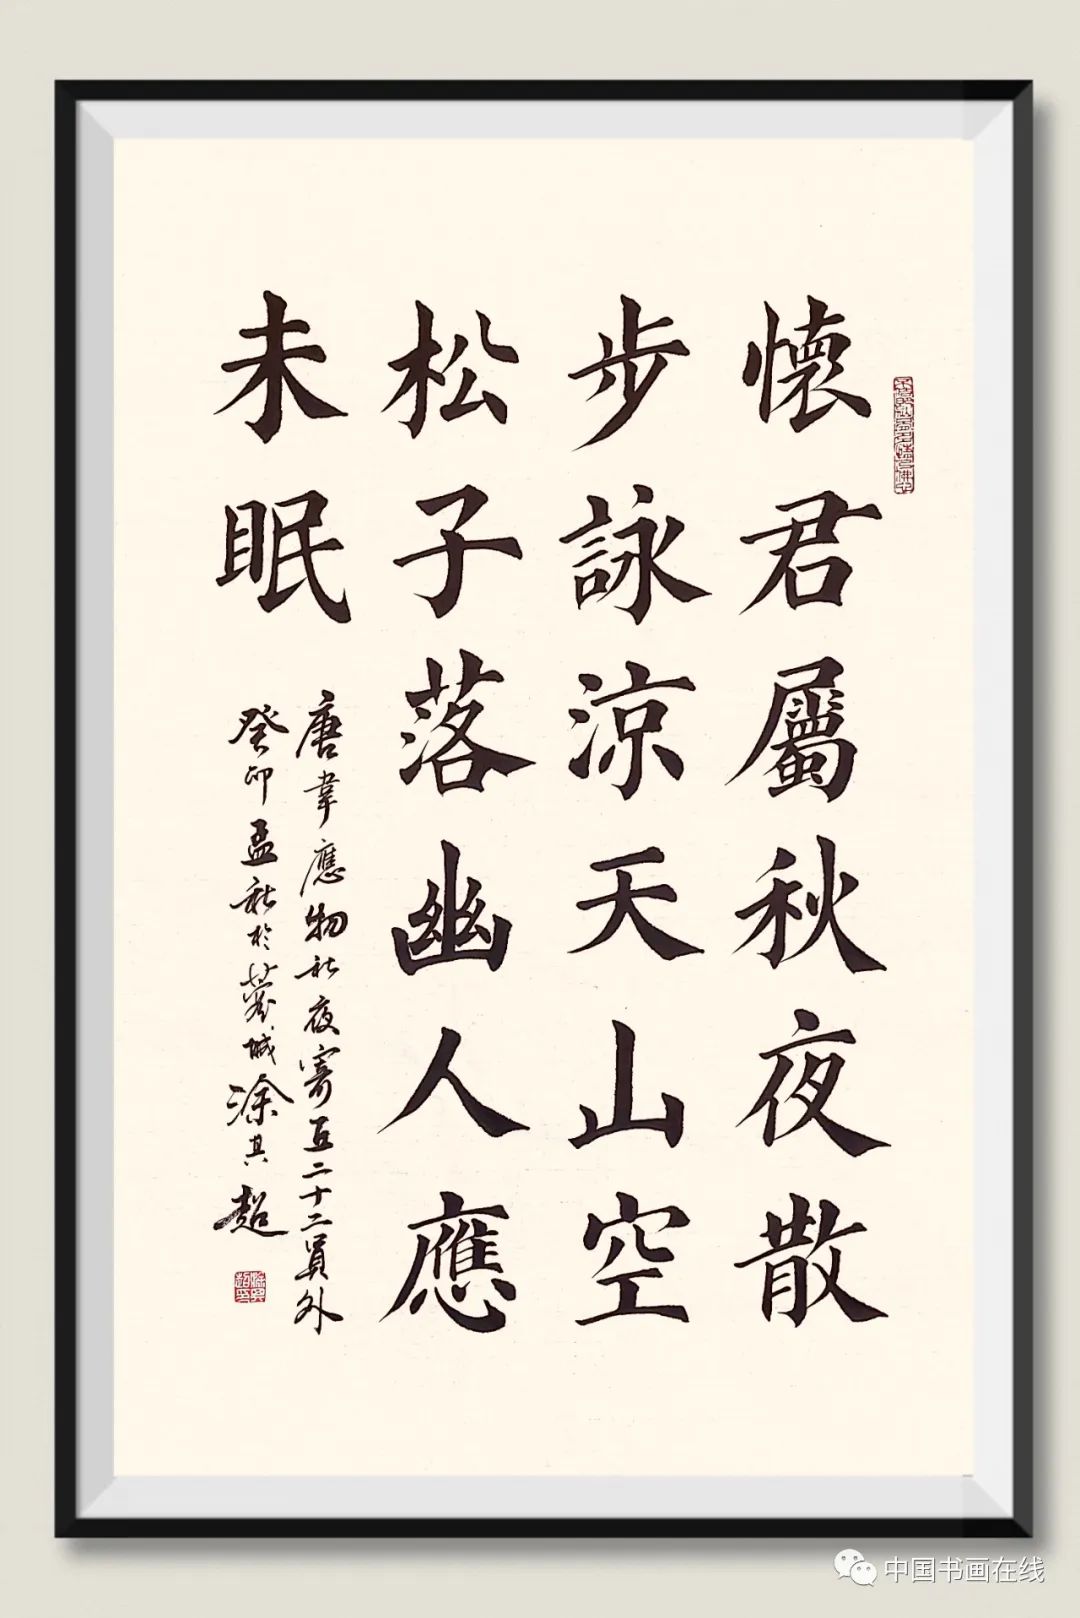 懷君屬秋夜散
步詠涼天山空
松子落幽人應
未眠
唐韋應物秋夜寄丘二十二員外
癸卯孟秋於城涂其超
中国书画在线